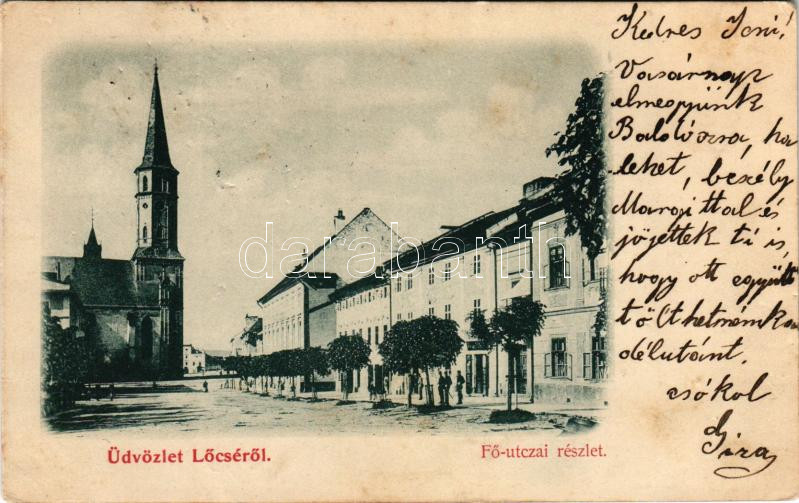 Kedves Icni!
Vasárnap
elmegyünk
Balóczra, ha
lehet, beszélj
Margittal és
jöjjetek ti is,
hogy ott együtt
tölthetnénk a
délutánt.
csókol
Giza
darabanth.com
Üdvözlet Lőcséről.
Fő-utczai részlet.